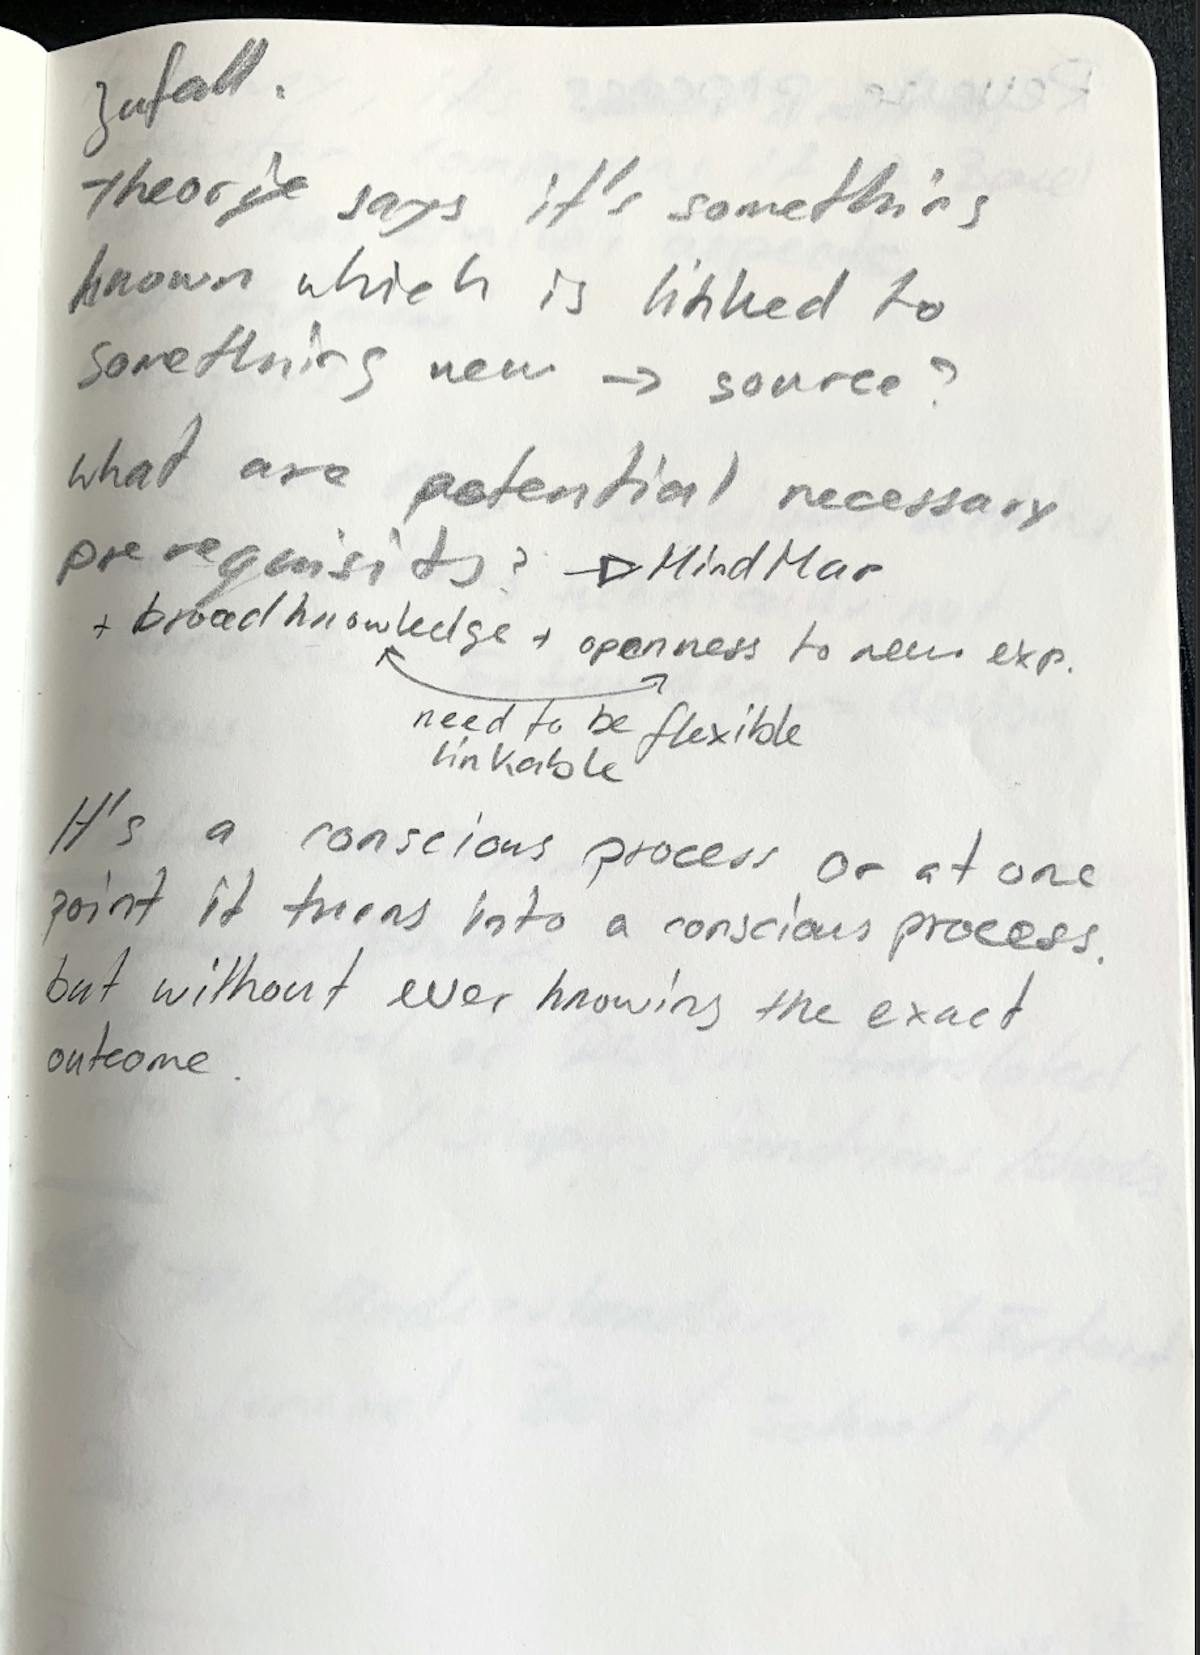 Zufall.
Theorie says it's something
known which is linked to
something new → source?
what are potential necessary
prerequisits? → MindMap
+ broad knowledge + openness to new exp.
need to be flexible
linkable
It's a conscious process or at one
point it turns into a conscious process.
but without ever knowing the exact
outcome.